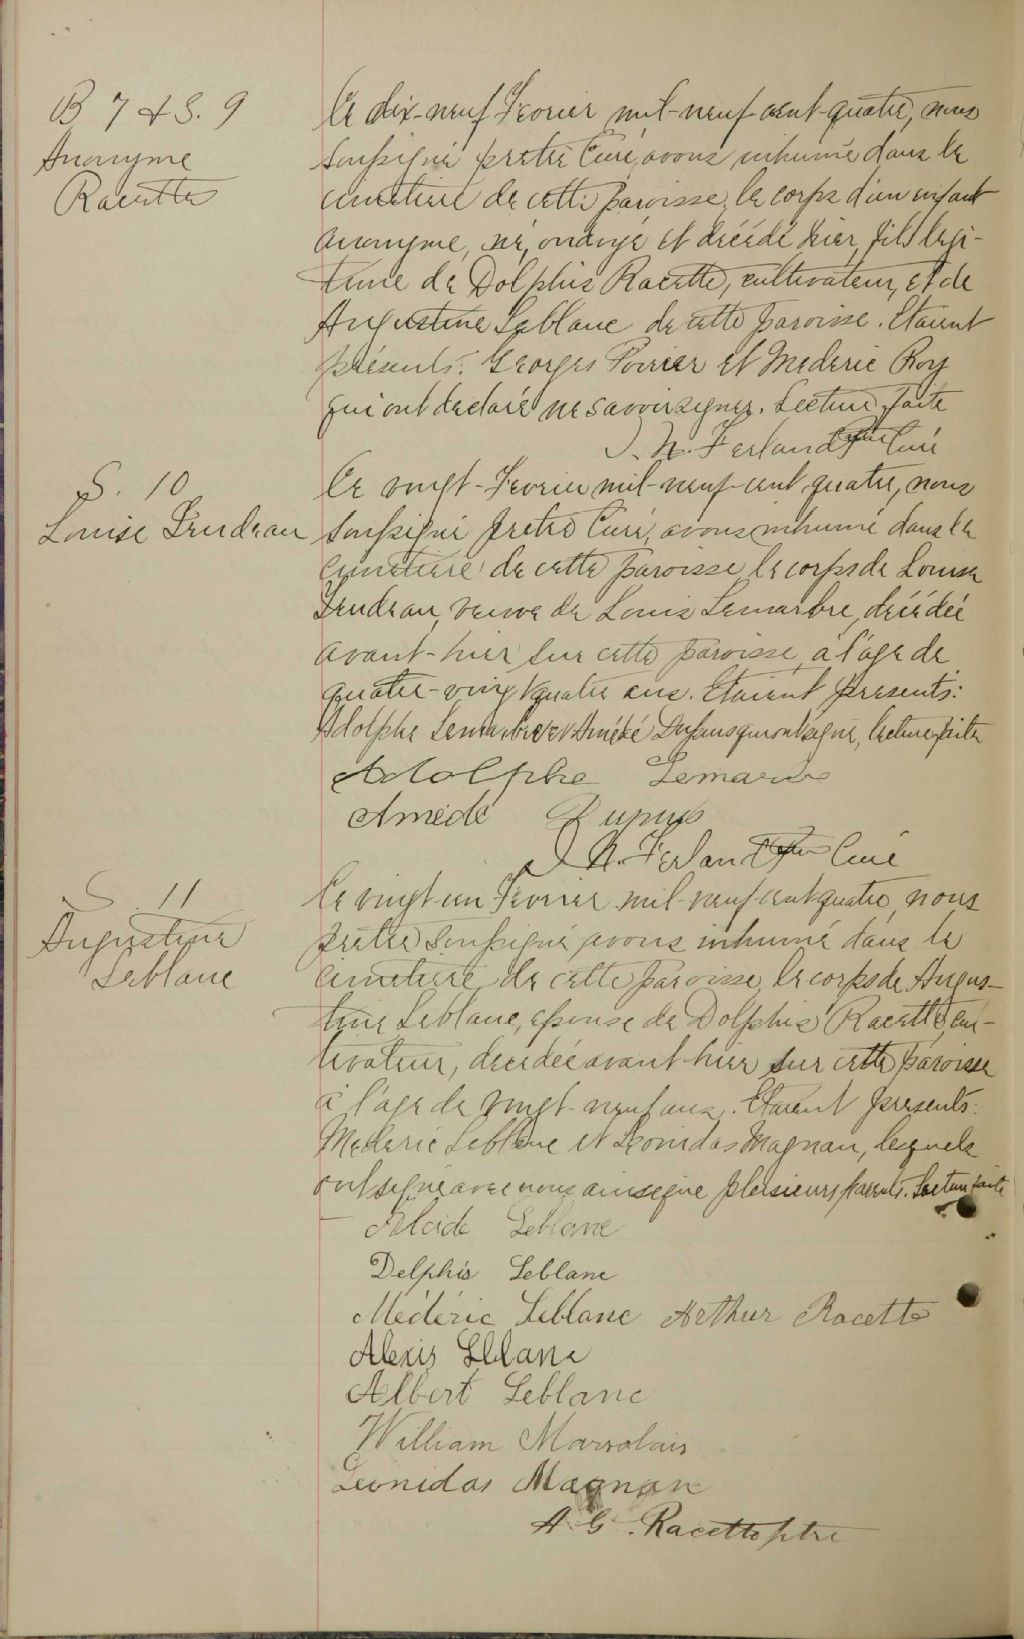 B 7 & S. 9
Anonyme
Racette
Le dix-neuf Fevrier mil-neuf-cent-quatre, nous
soussigné prêtre Curé, avons inhumé dans le
cimetière de cette paroisse, le corps d'un enfant
anonyme, né, ondoyé et décédé hier, fils legi-
time de Dolphis Racette, cultivateur, et de
Augustine Leblanc de cette paroisse. Etaient
présents: Georges Poirier et Mederic Roy
qui ont declaré ne savoir signer. Lecture faite
J. N. Ferland Ptre Curé
S. 10
Louise Trudeau
Le vingt-Fevrier mil-neuf-cent quatre, nous
soussigné prêtre Curé, avons inhumé dans le
cimetière de cette paroisse, le corps de Louise
Trudeau, veuve de Louis Lemarbre, décédée
avant-hier sur cette paroisse, à l'age de
quatre-vingt quatre ans. Etaient présents:
Adolphe Lemarbre et Amédé Dupuis qui ont signé, lecture faite
Adolphe Lemarbre
Amédé Dupuis
J. N. Ferland Ptre Curé
S. 11
Augustine
Leblanc
Le vingt-un Fevrier mil-neuf-cent quatre, nous
prêtre soussigné, avons inhumé dans le
cimetière de cette paroisse, le corps de Augus-
tine Leblanc, epouse de Dolphis Racette, cul-
tivateur, decedée avant-hier sur cette paroisse
à l'age de vingt-neuf ans. Etaient présents:
Mederic Leblanc et Leonidas Magnan, lesquels
ont signé avec nous ainsi que plusieurs parents. Lecture faite
Alcide Leblanc
Delphis Leblanc
Médéric Leblanc Arthur Racette
Alexis Leblanc
Albert Leblanc
William Marsolais
Leonidas Magnan
A. G. Racette ptre